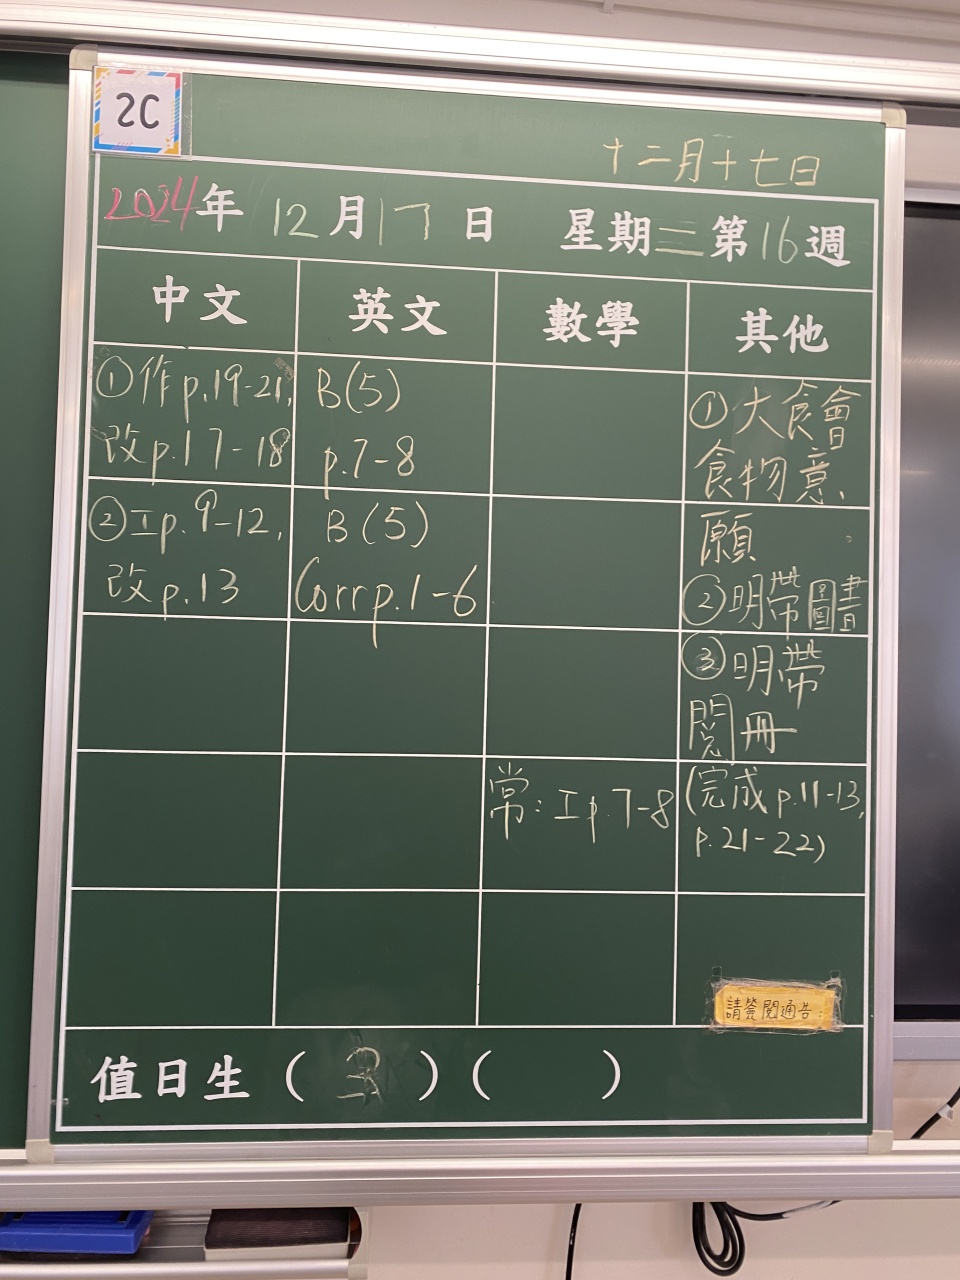 2C
十二月十七日
2024年 12月17日 星期三第16週
中文 英文 數學 其他
①作p.19-21,
改p.17-18
②工p.9-12,
改p.13
B(5)
p.7-8
B(5)
Corr p.1-6
常:工p.7-8
①大食會
食物意
願
②明帶圖書
③明帶
閱冊
(完成p.11-13,
p.21-22)
請簽閱通告
值日生( )( )